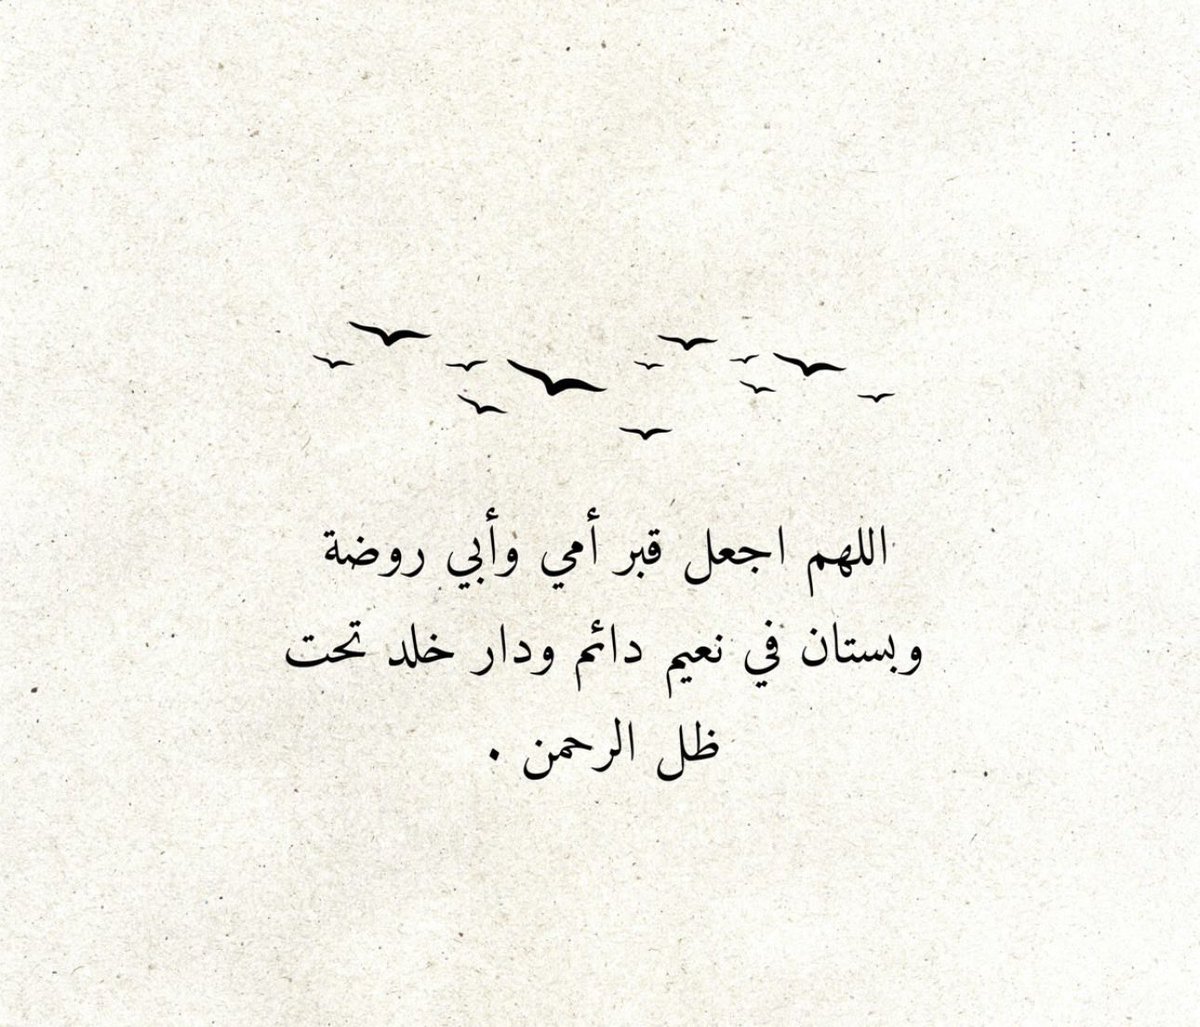 اللهم اجعل قبر أمي وأبي روضة
وبستان في نعيم دائم ودار خلد تحت
ظل الرحمن .